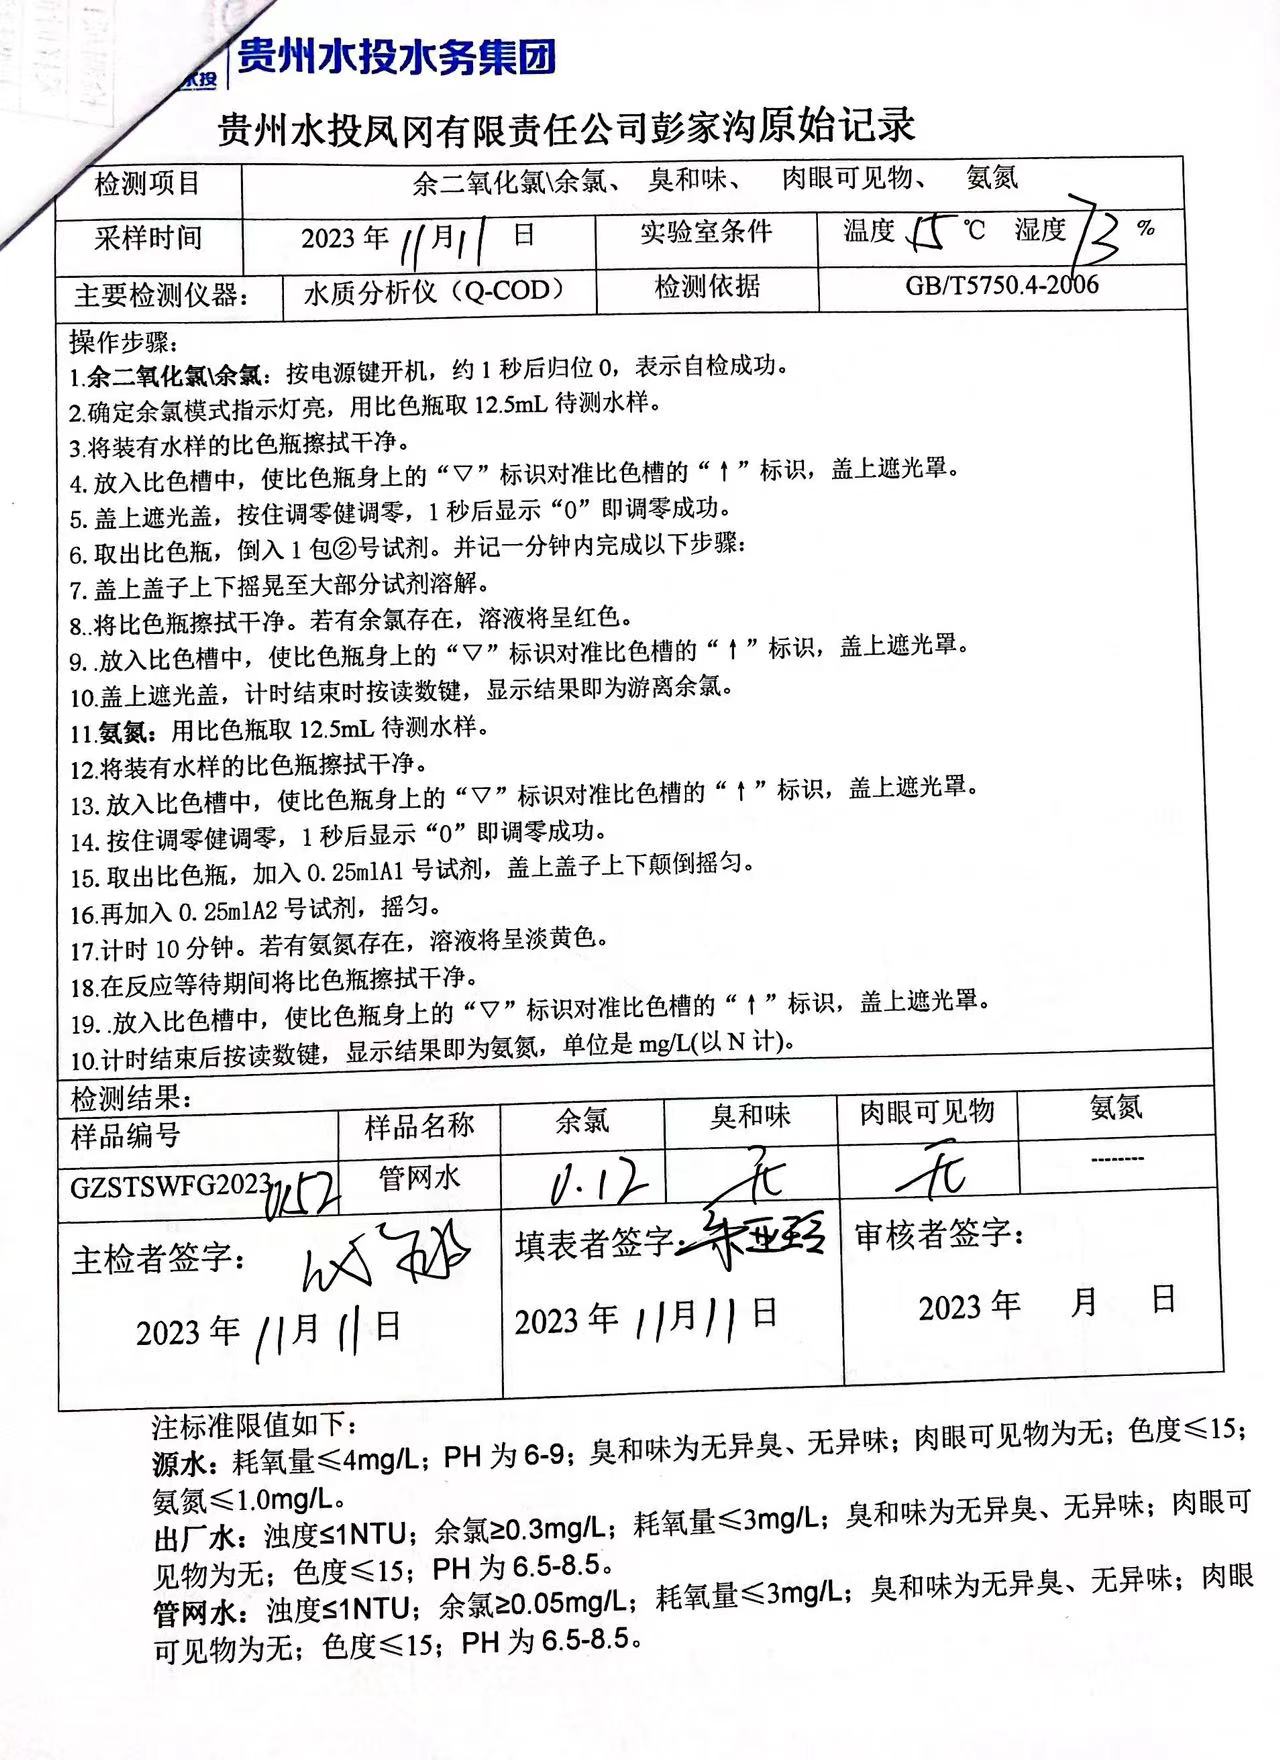 水投
贵州水投水务集团
贵州水投凤冈有限责任公司彭家沟原始记录
检测项目 余二氧化氯\余氯、 臭和味、 肉眼可见物、 氨氮
采样时间 2023 年 11 月 11 日 实验室条件 温度 15 ℃ 湿度 73 %
主要检测仪器： 水质分析仪（Q-COD） 检测依据 GB/T5750.4-2006
操作步骤：
1.余二氧化氯\余氯：按电源键开机，约 1 秒后归位 0，表示自检成功。
2.确定余氯模式指示灯亮，用比色瓶取 12.5mL 待测水样。
3.将装有水样的比色瓶擦拭干净。
4. 放入比色槽中，使比色瓶身上的“▽”标识对准比色槽的“↑”标识，盖上遮光罩。
5. 盖上遮光盖，按住调零健调零，1 秒后显示“0”即调零成功。
6. 取出比色瓶，倒入 1 包②号试剂。并记一分钟内完成以下步骤：
7. 盖上盖子上下摇晃至大部分试剂溶解。
8..将比色瓶擦拭干净。若有余氯存在，溶液将呈红色。
9. .放入比色槽中，使比色瓶身上的“▽”标识对准比色槽的“↑”标识，盖上遮光罩。
10.盖上遮光盖，计时结束时按读数键，显示结果即为游离余氯。
11.氨氮：用比色瓶取 12.5mL 待测水样。
12.将装有水样的比色瓶擦拭干净。
13. 放入比色槽中，使比色瓶身上的“▽”标识对准比色槽的“↑”标识，盖上遮光罩。
14. 按住调零健调零，1 秒后显示“0”即调零成功。
15. 取出比色瓶，加入 0.25mlA1 号试剂，盖上盖子上下颠倒摇匀。
16.再加入 0.25mlA2 号试剂，摇匀。
17.计时 10 分钟。若有氨氮存在，溶液将呈淡黄色。
18.在反应等待期间将比色瓶擦拭干净。
19. .放入比色槽中，使比色瓶身上的“▽”标识对准比色槽的“↑”标识，盖上遮光罩。
10.计时结束后按读数键，显示结果即为氨氮，单位是 mg/L(以 N 计)。
检测结果：
样品编号 样品名称 余氯 臭和味 肉眼可见物 氨氮
GZSTSWFG2023 管网水 0.12 无 无 --------
主检者签字： 填表者签字：朱亚玲 审核者签字：
2023 年 11 月 11 日 2023 年 11 月 11 日 2023 年 月 日
注标准限值如下：
源水：耗氧量≤4mg/L；PH 为 6-9；臭和味为无异臭、无异味；肉眼可见物为无；色度≤15；
氨氮≤1.0mg/L。
出厂水：浊度≤1NTU；余氯≥0.3mg/L；耗氧量≤3mg/L；臭和味为无异臭、无异味；肉眼可
见物为无；色度≤15；PH 为 6.5-8.5。
管网水：浊度≤1NTU；余氯≥0.05mg/L；耗氧量≤3mg/L；臭和味为无异臭、无异味；肉眼
可见物为无；色度≤15；PH 为 6.5-8.5。